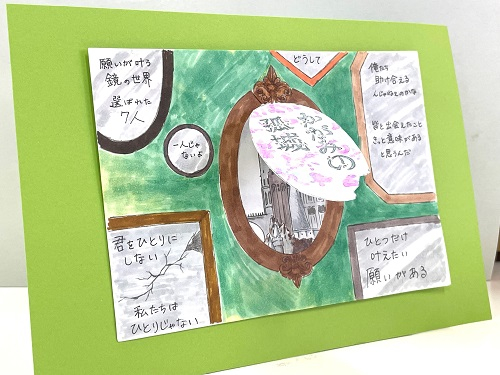 願いが叶う
鏡の世界
選ばれた
7人
どうして
俺たち
助け合える
んじゃないのかな
皆と出会えたこと
きっと意味がある
と思うんだ
一人じゃ
ないよ
かがみの
孤城
君をひとりに
しない
私たちは
ひとりじゃない
ひとつだけ
叶えたい
願いがある